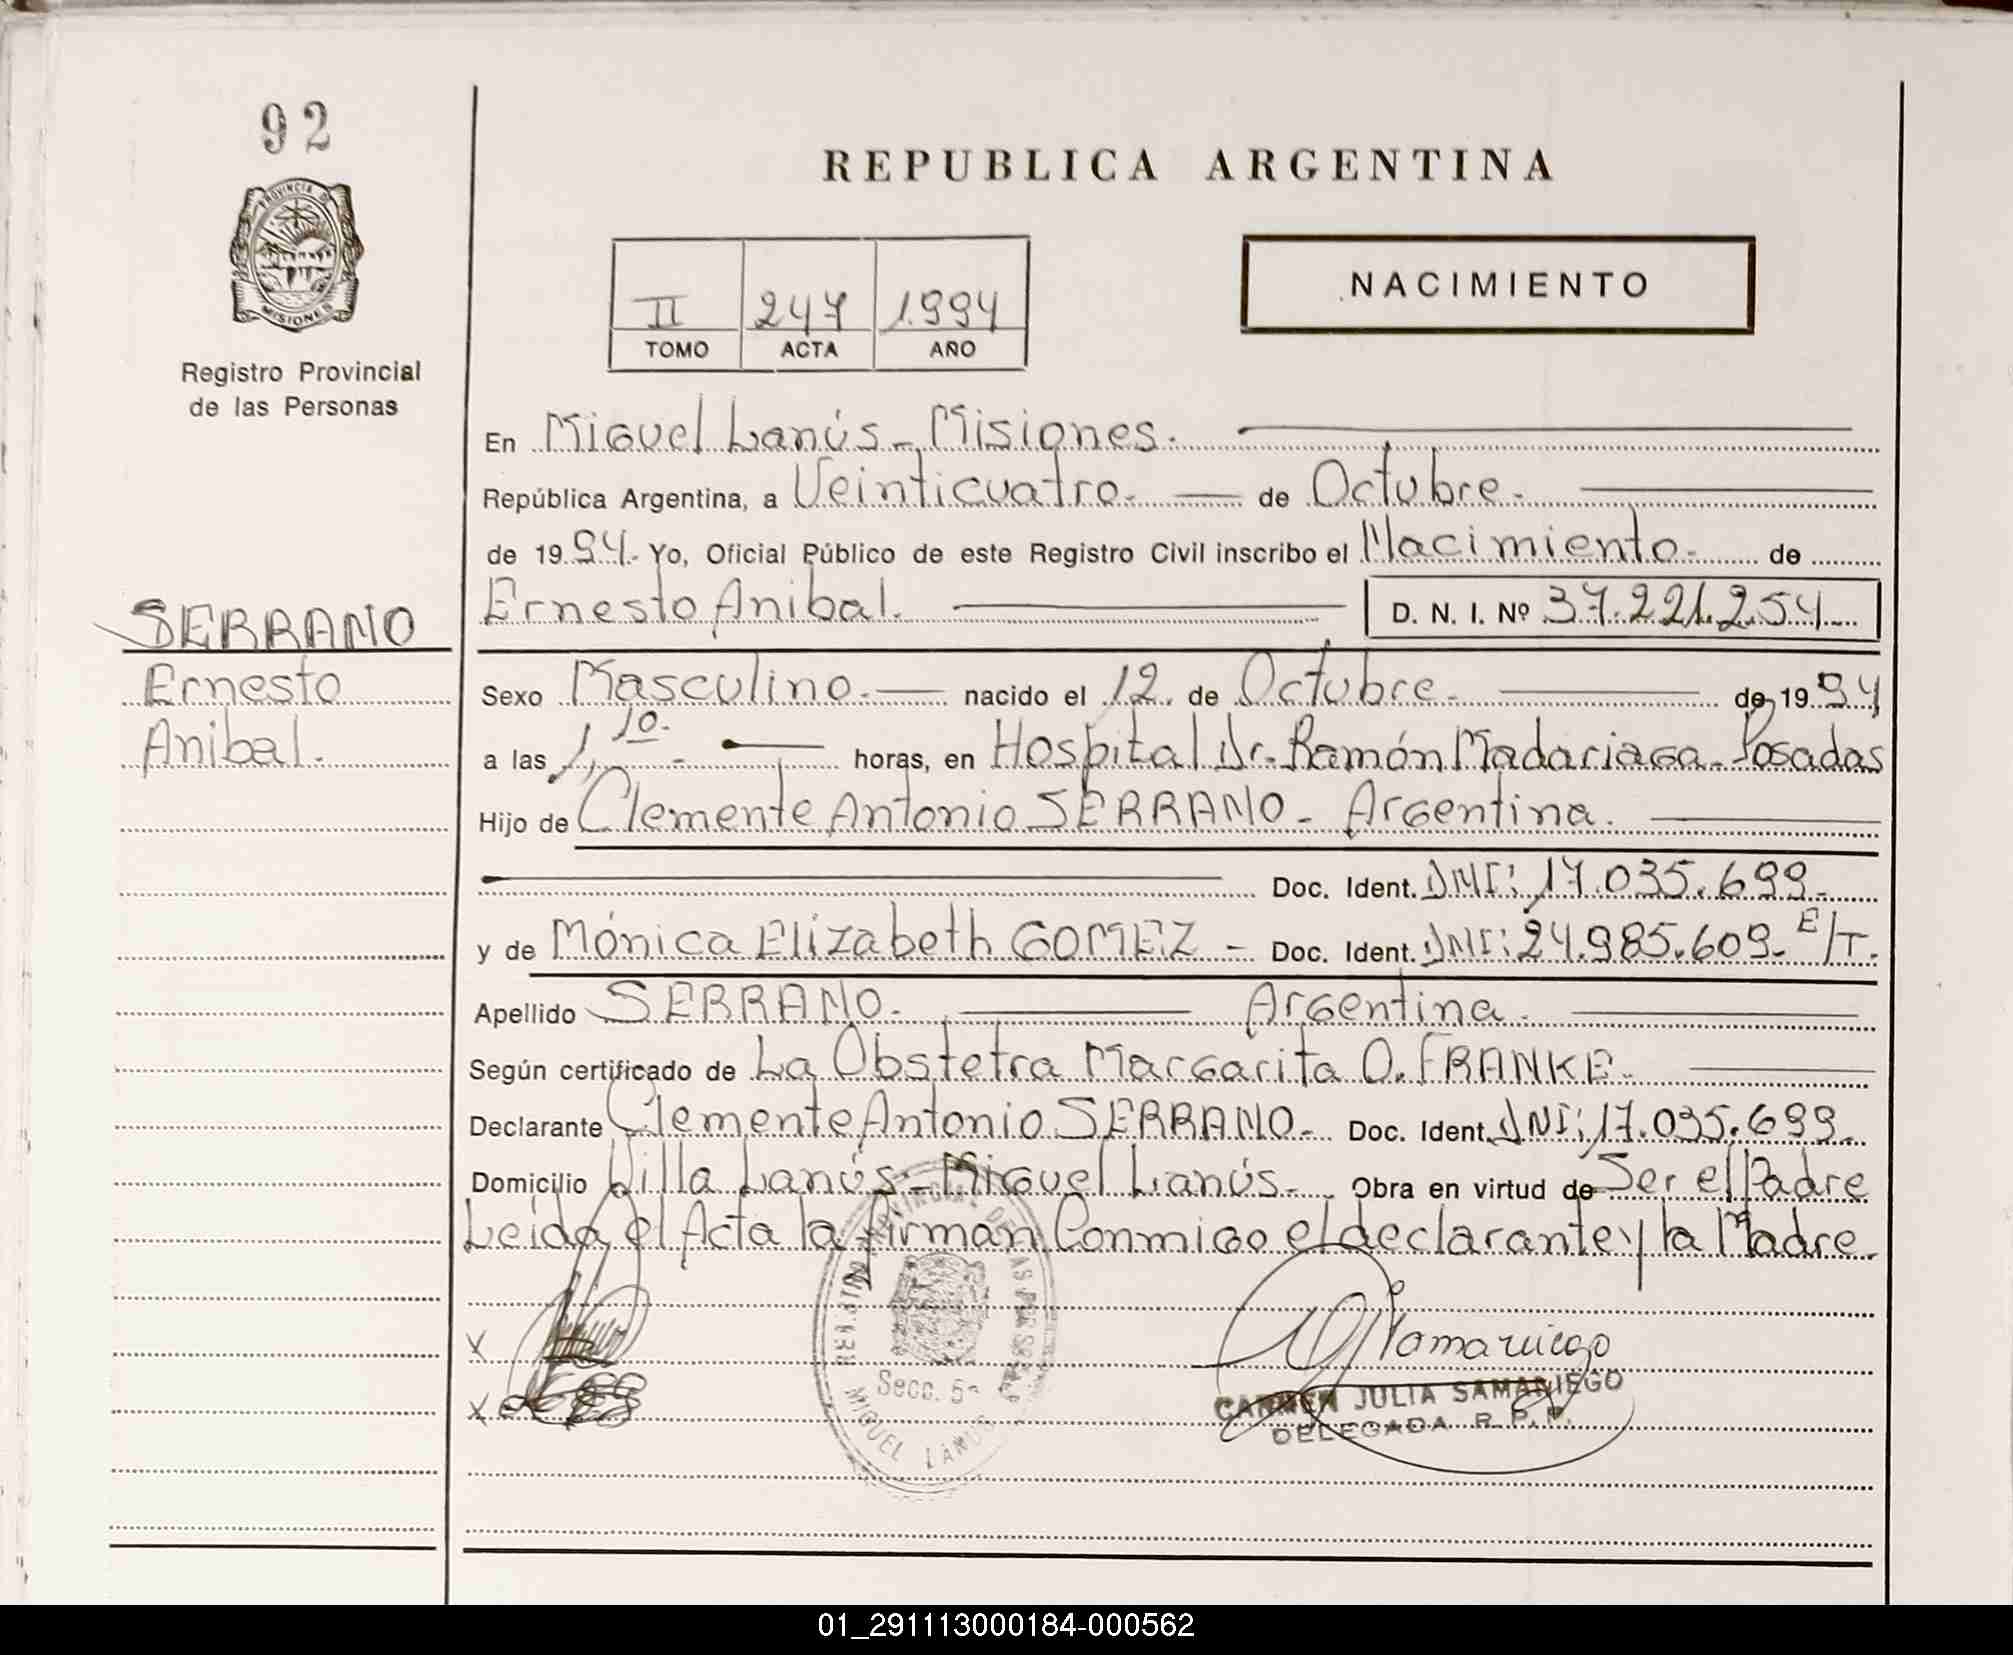 92
PROVINCIA DE
MISIONES
Registro Provincial
de las Personas
REPUBLICA ARGENTINA
II 247 1.994
TOMO ACTA AÑO
NACIMIENTO
En Miguel Lanús - Misiones.
República Argentina, a Veinticuatro. de Octubre.
de 1994. Yo, Oficial Público de este Registro Civil inscribo el Nacimiento. de
Ernesto Anibal. D. N. I. Nº 37.221.254
SERRANO
Ernesto
Anibal.
Sexo Masculino. nacido el 12 de Octubre. de 1994
a las 1,10. horas, en Hospital Dr. Ramón Madariaga - Posadas
Hijo de Clemente Antonio SERRANO - Argentina.
Doc. Ident. DNI: 17.035.699.
y de Mónica Elizabeth GOMEZ - Doc. Ident. DNI: 24.985.609. E/T.
Apellido SERRANO. Argentina.
Según certificado de La Obstetra Margarita O. FRANKE.
Declarante Clemente Antonio SERRANO. Doc. Ident. DNI: 17.035.699.
Domicilio Villa Lanús - Miguel Lanús. Obra en virtud de Ser el Padre
Leida el Acta la firman Conmigo el declarante y la Madre.
X
X
Secc. 5ª
MIGUEL LANUS
CARMEN JULIA SAMANIEGO
DELEGADA R. P. P.
01_291113000184-000562